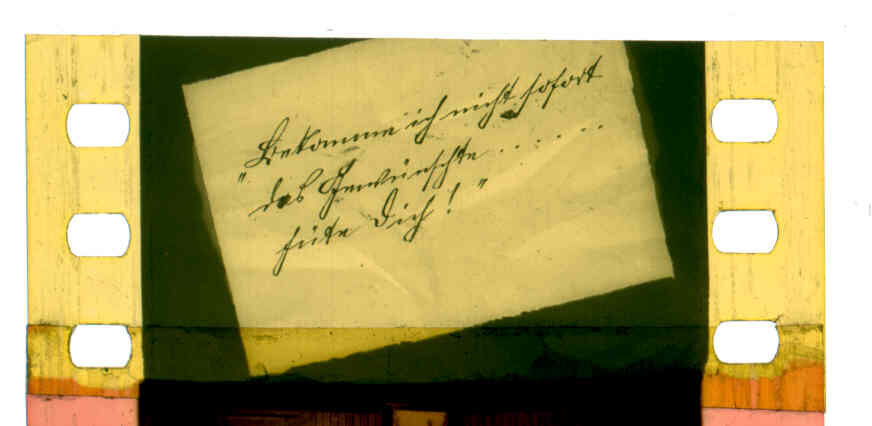 "Bekomme ich nicht sofort
das Gewünschte . . . . . .
hüte Dich!"